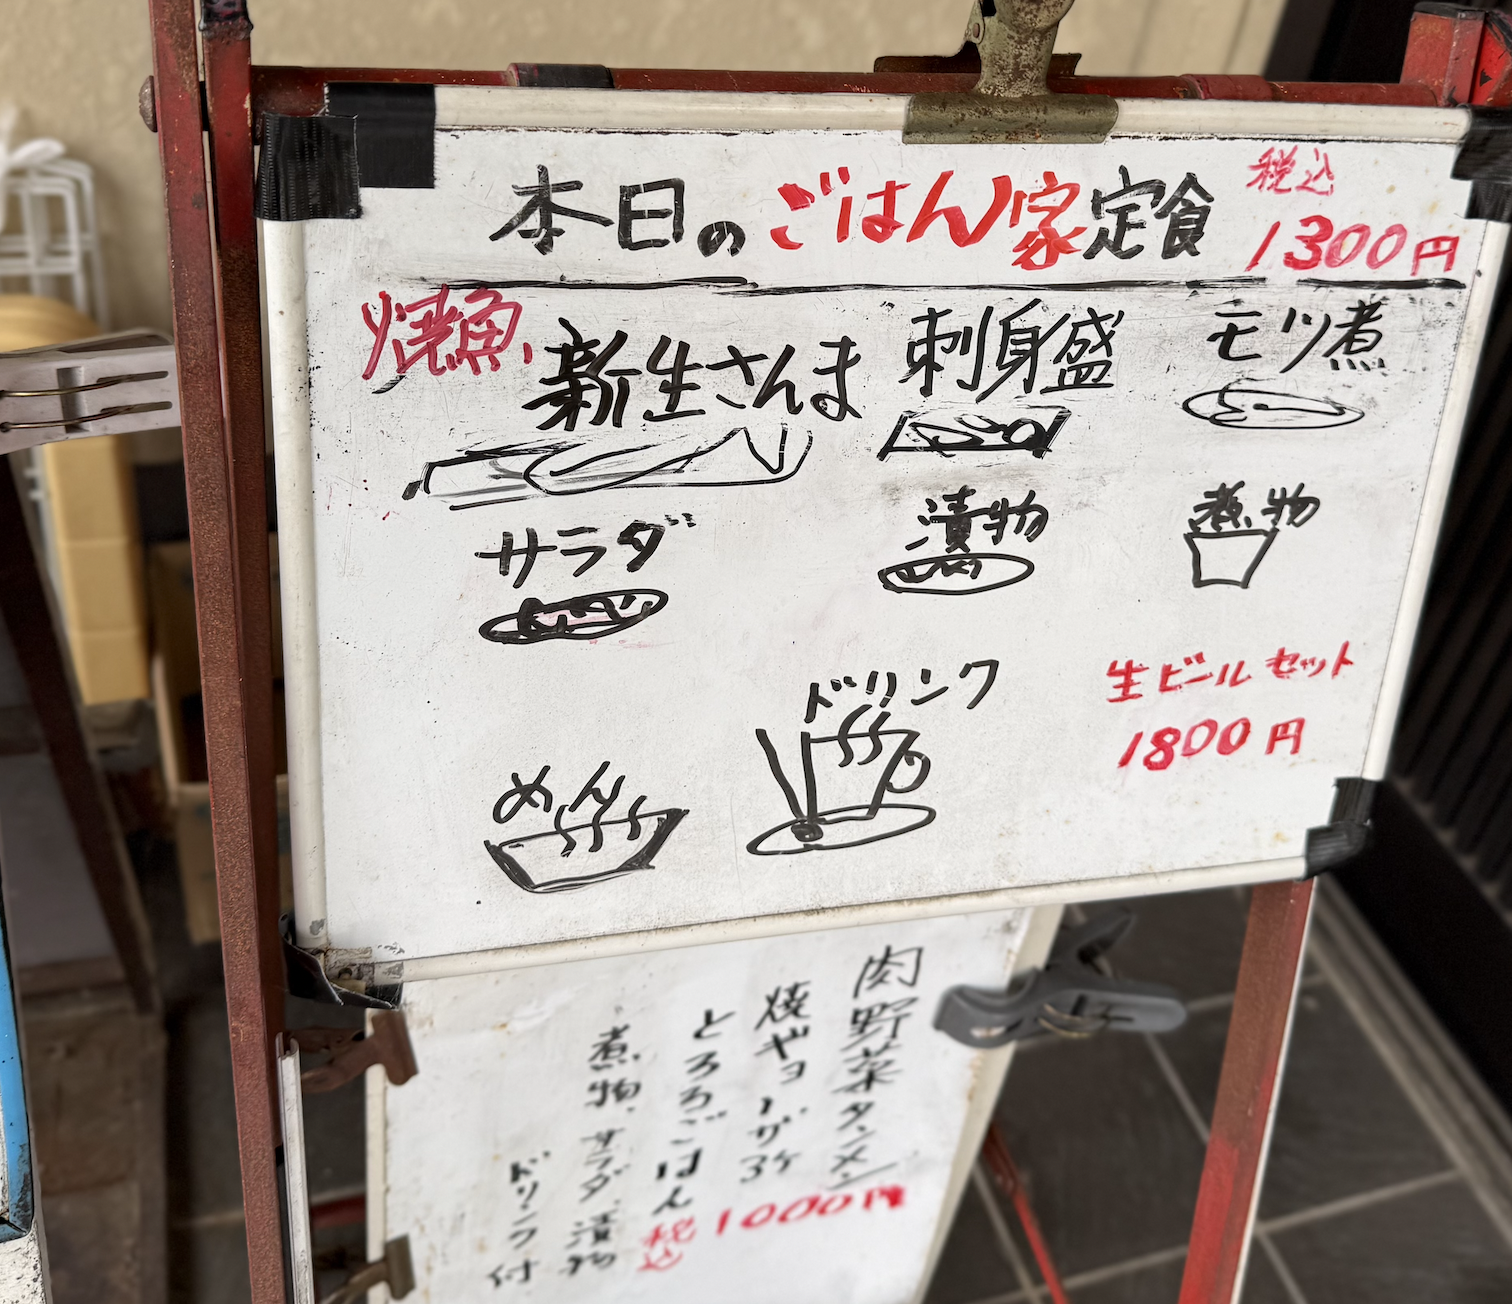 本日のごはん家定食
税込
1300円
焼魚
新生さんま
刺身盛
モツ煮
サラダ
漬物
煮物
めん
ドリンク
生ビールセット
1800円
肉野菜タンメン
焼ギョーザ3ケ
とろろごはん
煮物、サラダ、漬物
ドリンク付
税込
1000円